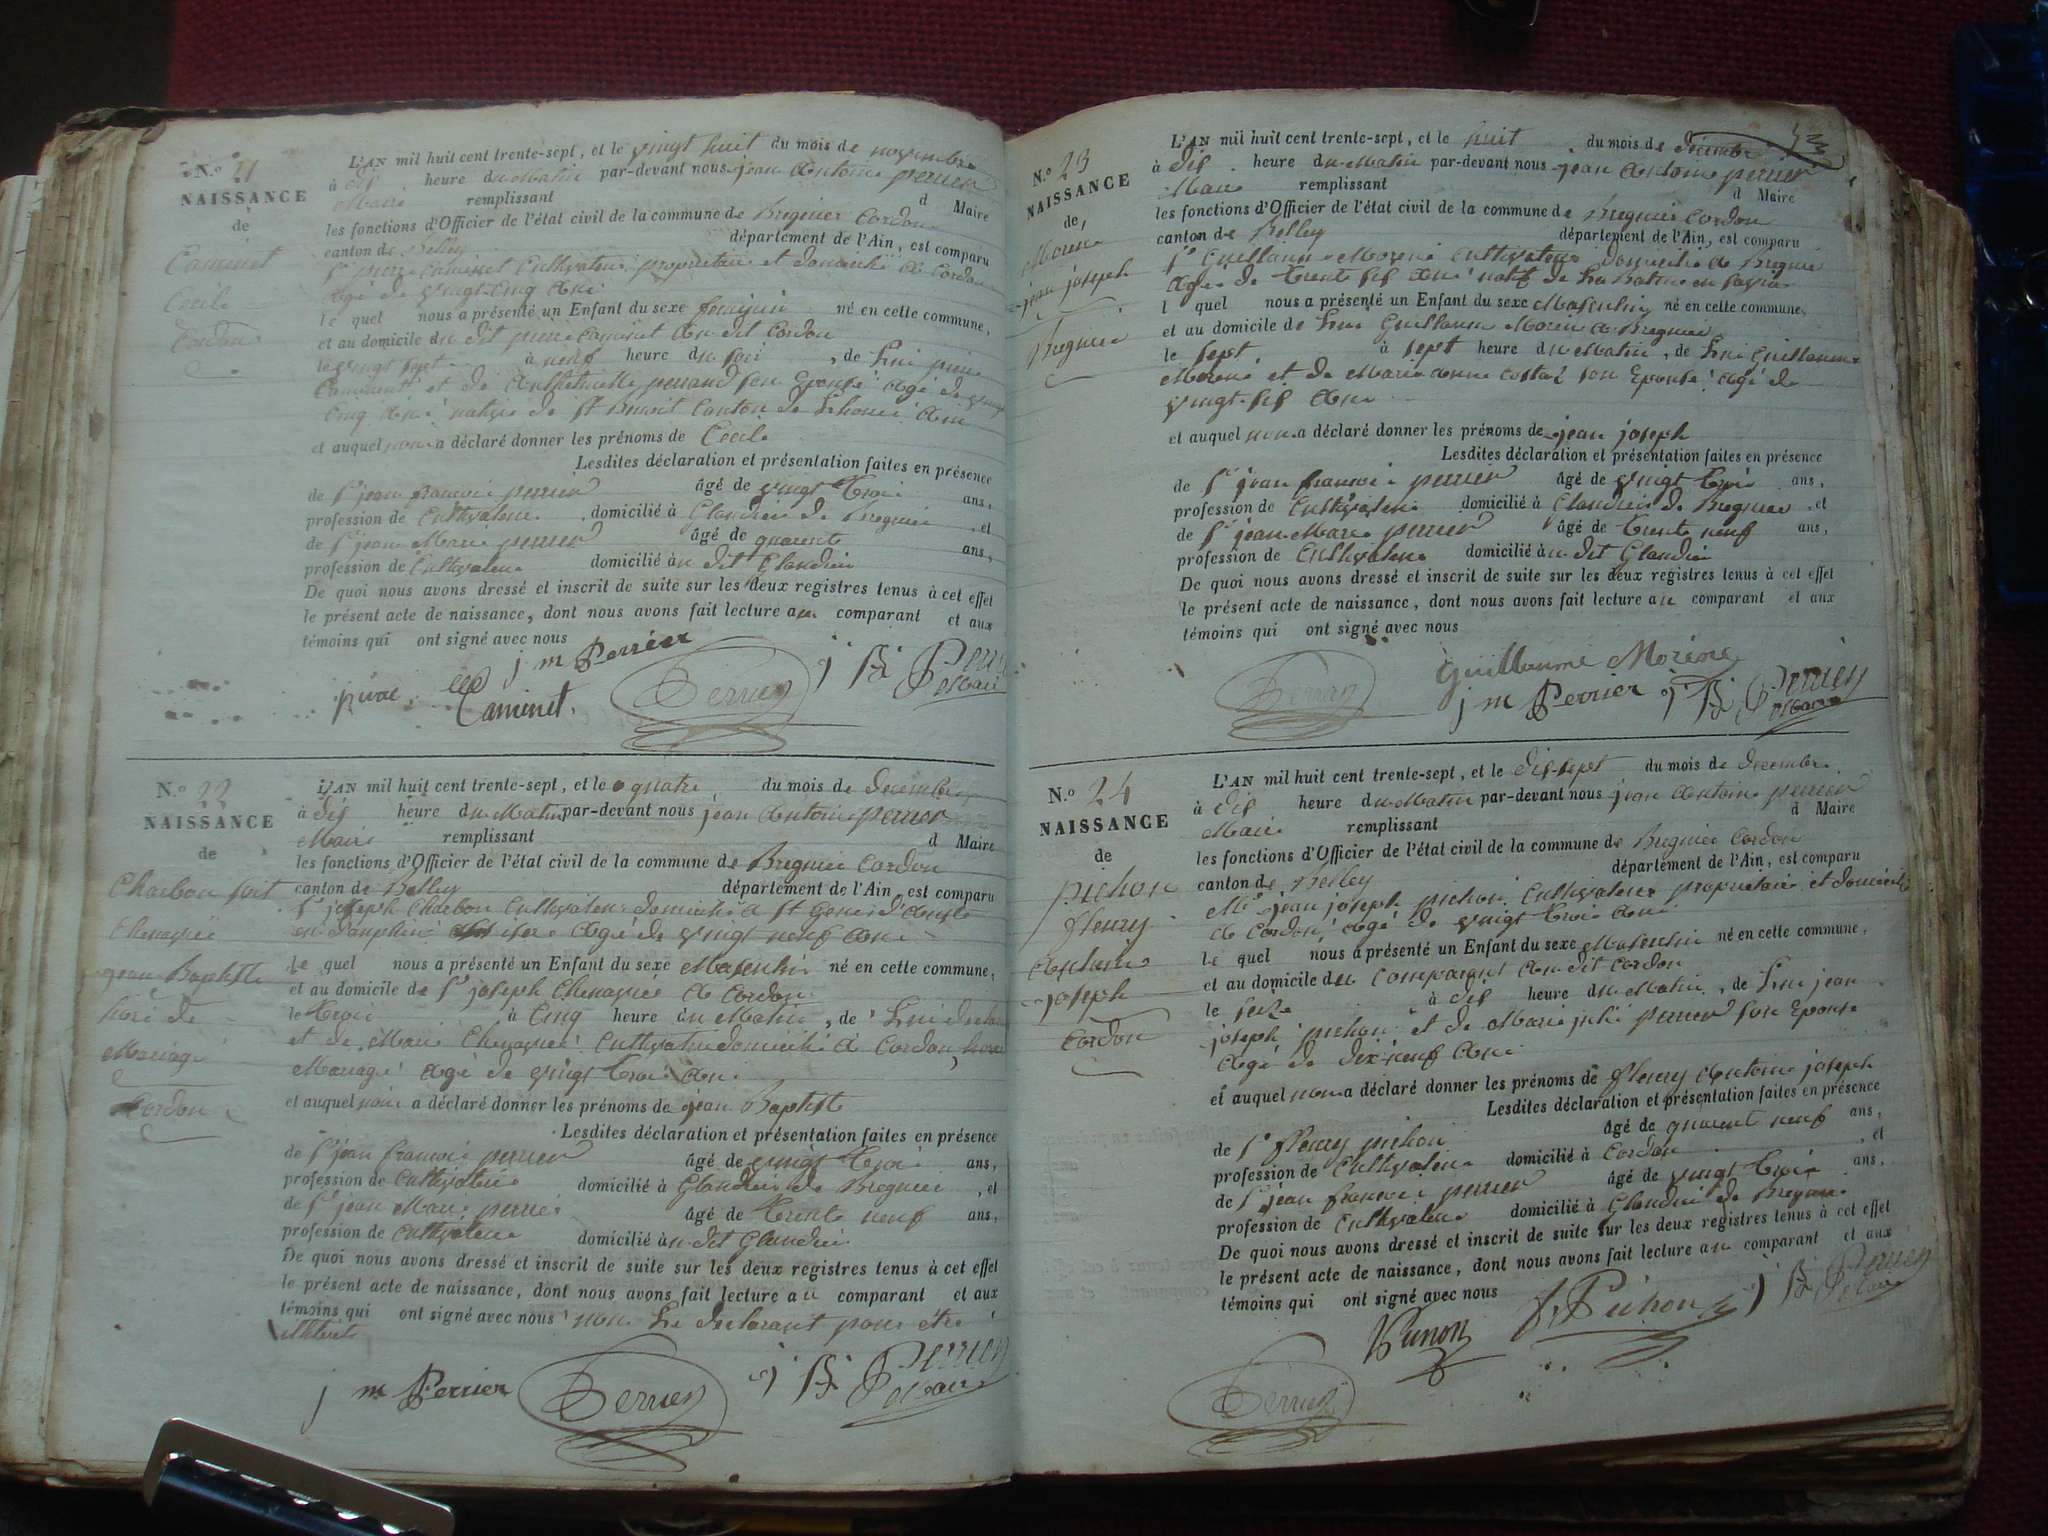 N.o 21
NAISSANCE
de
Caminet
Cecile
Cordon
L'AN mil huit cent trente-sept, et le vingt huit du mois de novembre
à dix heure du Matin par-devant nous jean Antoine perrier
Maire remplissant d Maire
les fonctions d'Officier de l'état civil de la commune de Bregnier Cordon
canton de Belley département de l'Ain, est comparu
Sr pierre Caminet Cultivateur proprietaire et domicilié à Cordon
agé de vingt cinq ans
le quel nous a présenté un Enfant du sexe feminin né en cette commune,
et au domicile du dit pierre Caminet au dit Cordon
le vingt sept à neuf heure du soir, de lui pierre
Caminet et de perrand son Epouse agé de vingt
cinq ans native de St Benoit Canton de ain
et auquel nous a déclaré donner les prénoms de Cecile
Lesdites déclaration et présentation faites en présence
de Sr jean francois perrier âgé de vingt trois ans,
profession de Cultivateur domicilié à Glandieu de Bregnier, et
de Sr jean Marie perrier âgé de quarente ans,
profession de Cultivateur domicilié au dit Glandieu
De quoi nous avons dressé et inscrit de suite sur les deux registres tenus à cet effet
le présent acte de naissance, dont nous avons fait lecture au comparant et aux
témoins qui ont signé avec nous
j m Perrier
Caminet Perrier Perrier
Maire
N.o 22
NAISSANCE
de
Charbon soit
Chenavier
jean Baptiste
hors de
Mariage
Cordon
L'AN mil huit cent trente-sept, et le quatre du mois de decembre
à dix heure du Matin par-devant nous jean Antoine perrier
Maire remplissant d Maire
les fonctions d'Officier de l'état civil de la commune de Bregnier Cordon
canton de Belley département de l'Ain, est comparu
Sr joseph Charbon Cultivateur domicilié à St Genis d'Aoste
en Dauphiné isere agé de vingt neuf ans
le quel nous a présenté un Enfant du sexe Masculin né en cette commune,
et au domicile de Sr joseph Chenavier à Cordon
le trois à Cinq heure du Matin, de lui declarant
et de Marie Chenavier Cultivatrice domiciliée à Cordon, hors
Mariage agé de vingt trois ans
et auquel nous a déclaré donner les prénoms de jean Baptiste
Lesdites déclaration et présentation faites en présence
de Sr jean francois perrier âgé de vingt trois ans,
profession de Cultivateur domicilié à Glandieu de Bregnier, et
de Sr jean Marie perrier âgé de trente neuf ans,
profession de Cultivateur domicilié au dit Glandieu
De quoi nous avons dressé et inscrit de suite sur les deux registres tenus à cet effet
le présent acte de naissance, dont nous avons fait lecture au comparant et aux
témoins qui ont signé avec nous non le declarant pour être
illiteré
j m Perrier Perrier Perrier
Maire
N.o 23
NAISSANCE
de
Morene
jean joseph
Bregnier
L'AN mil huit cent trente-sept, et le huit du mois de decembre
à dix heure du Matin par-devant nous jean Antoine perrier
Maire remplissant d Maire
les fonctions d'Officier de l'état civil de la commune de Bregnier Cordon
canton de Belley département de l'Ain, est comparu
Sr Guillaume Morene Cultivateur domicilié à Bregnier
agé de trente six ans natif de La Batie en Savoie
l quel nous a présenté un Enfant du sexe Masculin né en cette commune,
et au domicile de lui Guillaume Morene à Bregnier
le sept à sept heure du Matin, de lui Guillaume
Morene et de Marie Anne Costaz son Epouse agé de
vingt six ans
et auquel nous a déclaré donner les prénoms de jean joseph
Lesdites déclaration et présentation faites en présence
de Sr jean francois perrier âgé de vingt trois ans,
profession de Cultivateur domicilié à Glandieu de Bregnier, et
de Sr jean Marie perrier âgé de trente neuf ans,
profession de Cultivateur domicilié au dit Glandieu
De quoi nous avons dressé et inscrit de suite sur les deux registres tenus à cet effet
le présent acte de naissance, dont nous avons fait lecture au comparant et aux
témoins qui ont signé avec nous
Guillaume Moréne
Perrier j m Perrier Perrier
Maire
N.o 24
NAISSANCE
de
pichon
fleury
Anthoine
joseph
Cordon
L'AN mil huit cent trente-sept, et le dix sept du mois de decembre
à dix heure du Matin par-devant nous jean Antoine perrier
Maire remplissant d Maire
les fonctions d'Officier de l'état civil de la commune de Bregnier Cordon
canton de Belley département de l'Ain, est comparu
Mr jean joseph pichon Cultivateur proprietaire et domicilié
à Cordon agé de vingt trois ans
le quel nous a présenté un Enfant du sexe Masculin né en cette commune,
et au domicile du Comparant au dit Cordon
le seize à dix heure du Matin, de lui jean
joseph pichon et de Marie julie perrier son Epouse
agé de dix neuf ans
et auquel nous a déclaré donner les prénoms de fleury Antoine joseph
Lesdites déclaration et présentation faites en présence
de Sr fleury pichon âgé de quarente neuf ans,
profession de Cultivateur domicilié à Cordon, et
de Sr jean francois perrier âgé de vingt trois ans,
profession de Cultivateur domicilié à Glandieu de Bregnier
De quoi nous avons dressé et inscrit de suite sur les deux registres tenus à cet effet
le présent acte de naissance, dont nous avons fait lecture au comparant et aux
témoins qui ont signé avec nous
f Pichon Perrier
Maire
Perrier